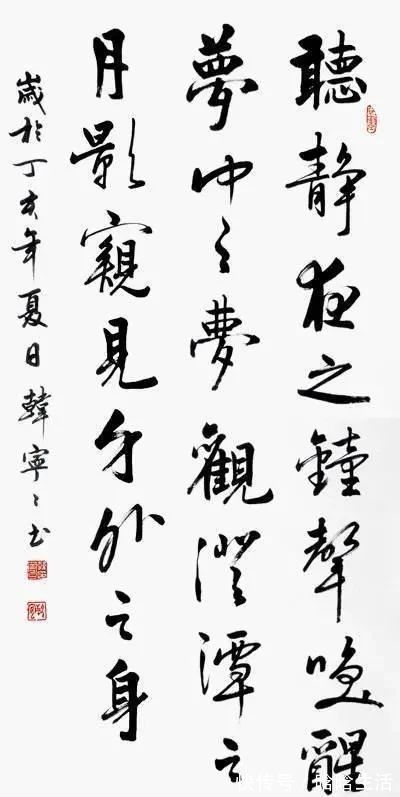 聽靜夜之鐘聲喚醒
夢中之夢觀澄潭之
月影窺見身外之身
歲於丁亥年夏日韓寧〻书
快传号